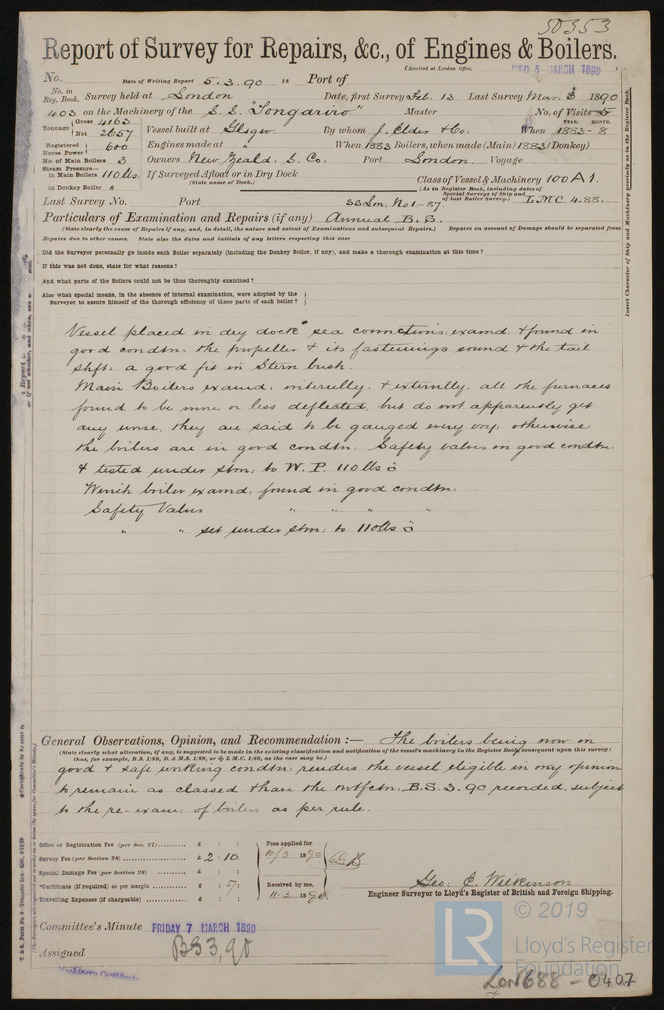 50353
Report of Survey for Repairs, &c., of Engines & Boilers.
(Received at London Office, WED 5 MARCH 1890)
No. Date of Writing Report 5.3.90 18 Port of
No. in Reg. Book. Survey held at London Date, first Survey Feb. 13 Last Survey Mar. 3 1890
403 on the Machinery of the S.S. "Tongariro" Master No. of Visits 5
Tonnage Gross 4163 Net 2657 Vessel built at Glsgw. By whom J. Elder & Co. When YEAR. MONTH. 1883-8
Registered Horse Power 600 Engines made at " When 1883 Boilers, when made (Main) 1883 (Donkey)
No. of Main Boilers 3 Owners New Zeald. S. Co. Port London Voyage
Steam Pressure— in Main Boilers 110 lbs. If Surveyed Afloat or in Dry Dock Class of Vessel & Machinery 100A1.
(State name of Dock.) (As in Register Book, including dates of Special Surveys of Ship and of last Boiler Survey.)
in Donkey Boiler "
Last Survey No. Port SS Lon. No 1-87. L.M.C. 4.88.
Particulars of Examination and Repairs (if any) Annual B.S.
(State clearly the cause of Repairs if any, and, in detail, the nature and extent of Examinations and subsequent Repairs.) Repairs on account of Damage should be separated from
Repairs due to other causes. State also the dates and initials of any letters respecting this case
Did the Surveyor personally go inside each Boiler separately (including the Donkey Boiler, if any), and make a thorough examination at this time?
If this was not done, state for what reasons?
And what parts of the Boilers could not be thus thoroughly examined?
Also what special means, in the absence of internal examination, were adopted by the
Surveyor to assure himself of the thorough efficiency of these parts of each boiler?
Vessel placed in dry dock sea connections examd. & found in
good condtn. the propeller & its fastenings sound & the tail
shft. a good fit in Stern bush.
Main Boilers examd. interully. & externlly. all the furnaces
found to be more or less deflected, but do not apparently get
any worse, they are said to be gauged every voy. otherwise
the boilers are in good condtn. Safety valves in good condtn.
& tested under stm: to W.P. 110 lbs □
Winch boiler examd. found in good condtn.
Safety Valves " " " "
" " set under stm: to 110 lbs □
General Observations, Opinion, and Recommendation :— The boilers being now in
(State clearly what alteration, if any, is suggested to be made in the existing classification and notification of the vessel's machinery in the Register Book consequent upon this survey:
thus, for example, B.S. 1/89, B. & M.S. 1/89, or ✠ L.M.C. 1/89, as the case may be.)
good & safe working condtn: renders the vessel eligible in my opinion
to remain as classed than the notfctn. B.S. 3.90 recorded, subject
to the re-exam: of boilers as per rule.
Office or Registration Fee (per Sec. 27) £ : :
Survey Fee (per Section 28) £ 2 : 10 :
Special Damage Fee (per Section 28) £ : :
*Certificate (if required) as per margin £ : 5/ :
Travelling Expenses (if chargeable) £ : :
Fees applied for 10/3 1890
Received by me, 11.3 1890
Geo: C. Wilkinson
Engineer Surveyor to Lloyd's Register of British and Foreign Shipping.
Committee's Minute FRIDAY 7 MARCH 1890
Assigned BS 3,90
Machinery Certificate
Insert Character of Ship and Machinery precisely as in the Register Book.
© 2019
LR Lloyd's Register
Foundation
LON688-0407